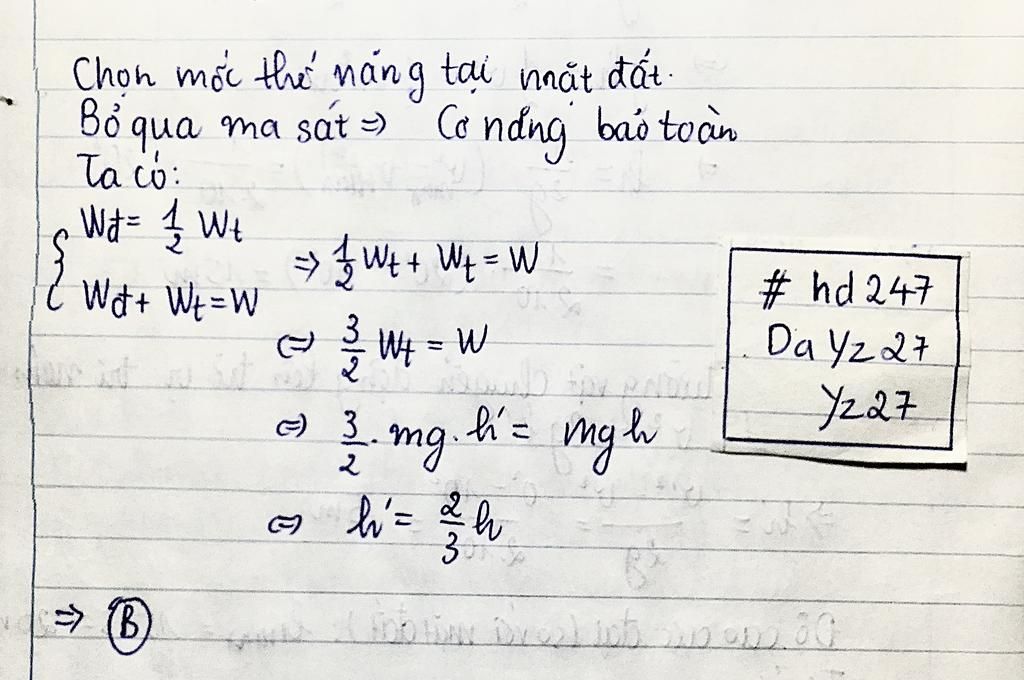 Chọn mốc thế năng tại mặt đất.
Bỏ qua ma sát => Cơ năng bảo toàn
Ta có:
{ Wđ = 1/2 Wt
Wđ + Wt = W
=> 1/2 Wt + Wt = W
<=> 3/2 Wt = W
<=> 3/2 . mg . h' = mgh
<=> h' = 2/3 h
=> B
# hd247
DaYz27
Yz27